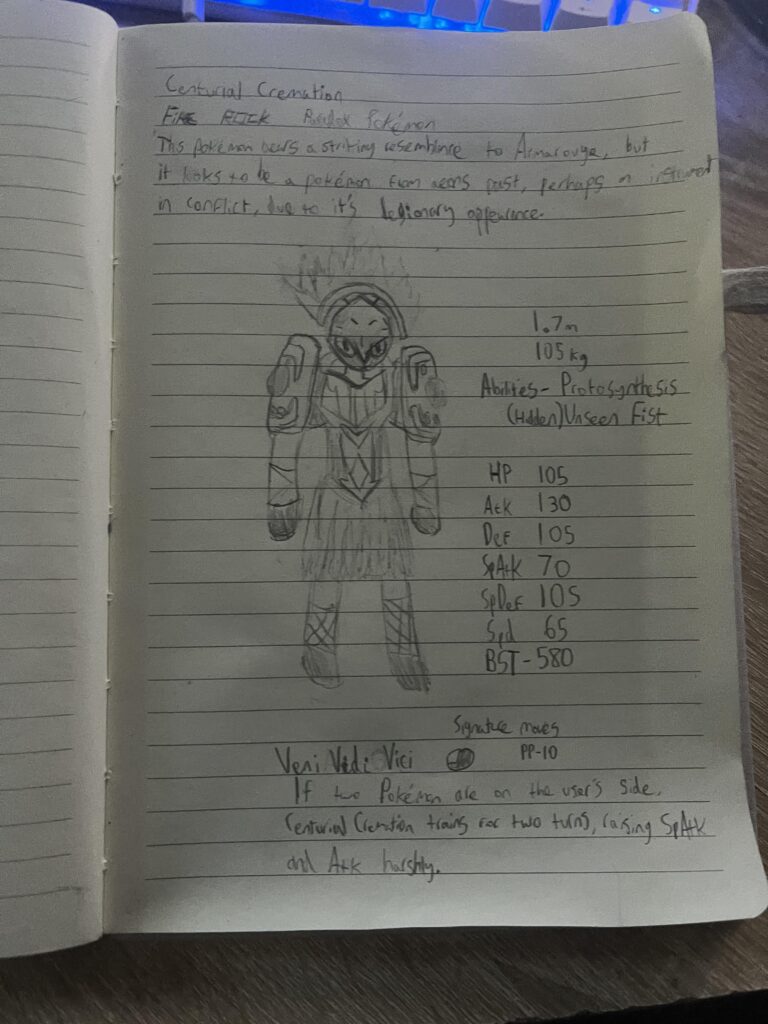 Centurial Cremation
Fire Rock Paradox Pokémon
This pokémon bears a striking resemblance to Armarouge, but
it looks to be a pokémon from aeons past, perhaps an instrument
in conflict, due to it's legionary appearance.
1.7m
105kg
Abilities - Protosynthesis
(Hidden) Unseen Fist
HP 105
Atk 130
Def 105
SpAtk 70
SpDef 105
Spd 65
BST - 580
Signature moves
Veni Vidi Vici PP-10
If two Pokémon are on the user's side,
Centurial Cremation trains for two turns, raising SpAtk
and Atk harshly.